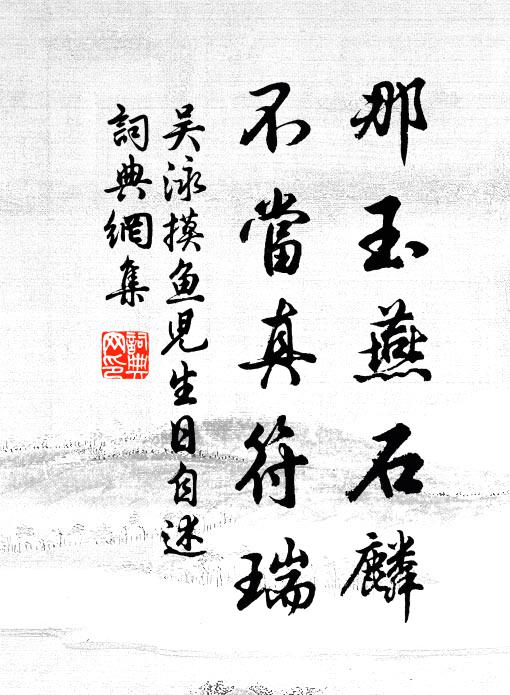 那玉燕石麟
不當真符瑞
吴泳摸魚児生日自述
詞典網集
詞典
网印